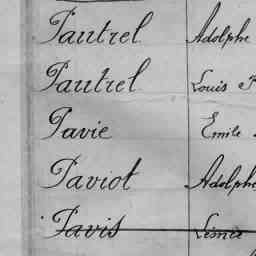 Pautrel Adolphe
Pautrel Louis F
Pavie Emile
Paviot Adolphe
Pavis